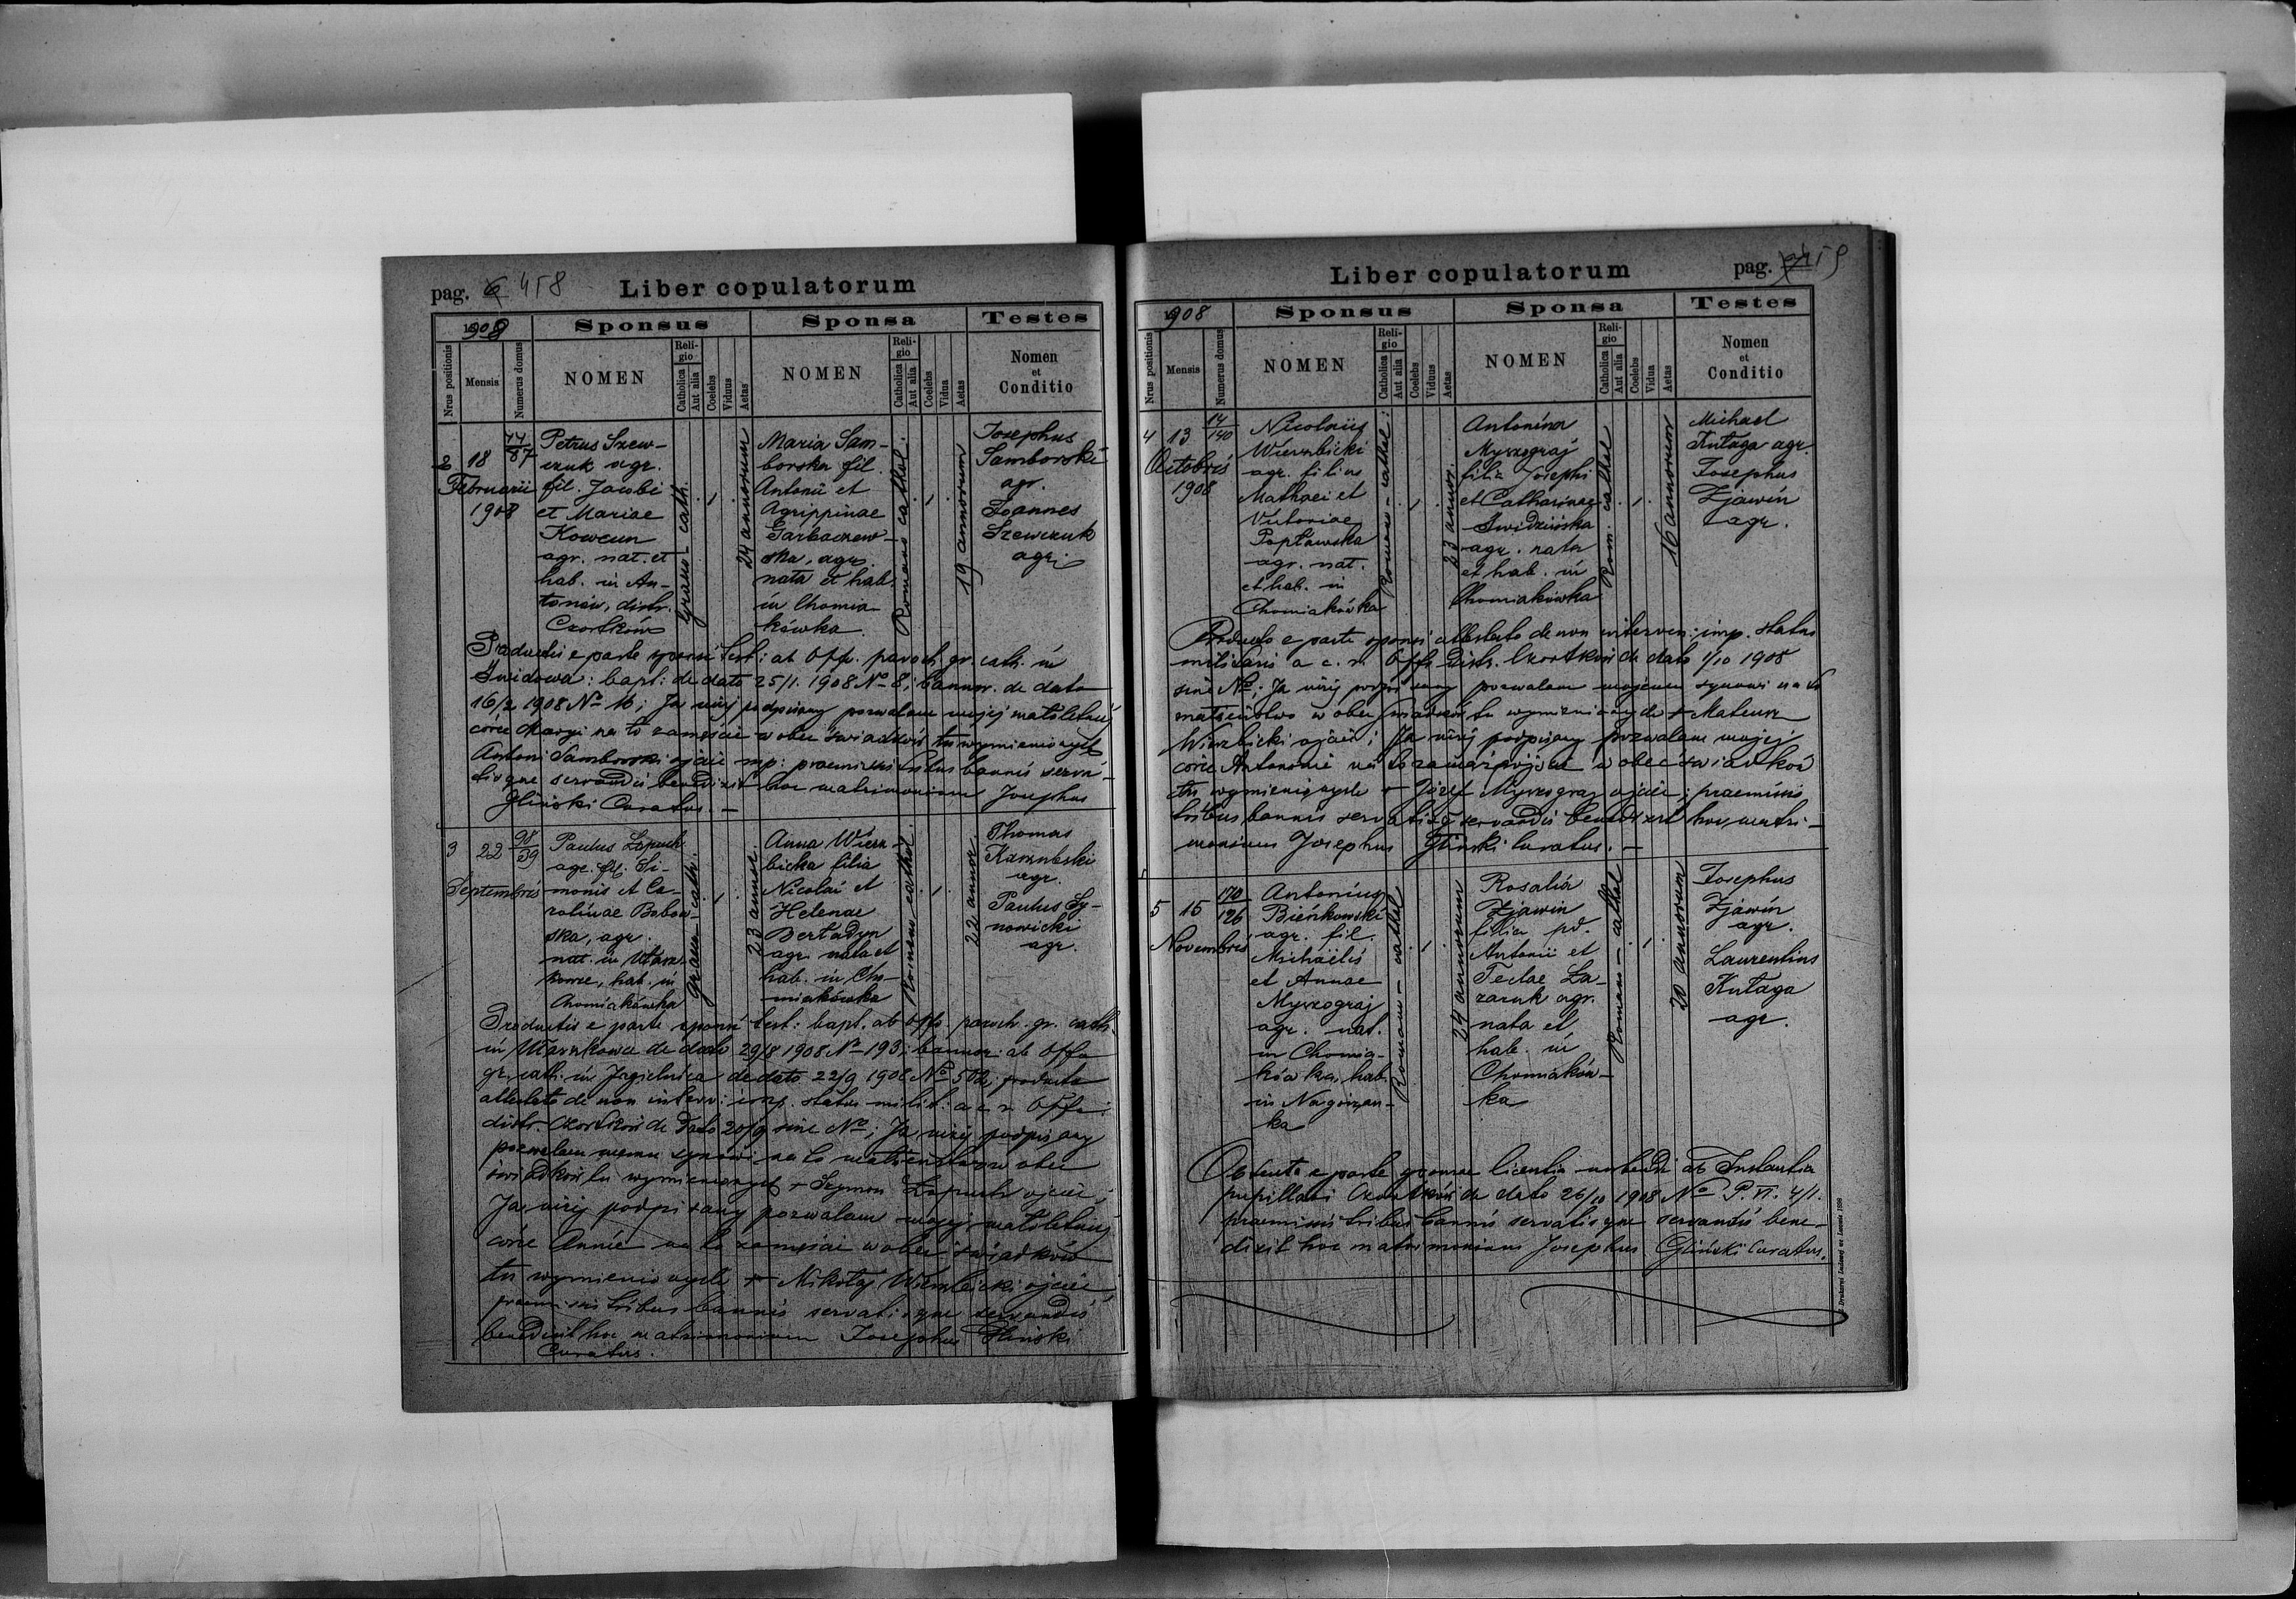 pag. 6 458 Liber copulatorum
1908 Sponsus Sponsa Testes
Nrus positionis Mensis Numerus domus NOMEN Religio Catholica Aut alia Coelebs Viduus Aetas NOMEN Religio Catholica Aut alia Coelebs Vidua Aetas Nomen et Conditio
2 18 Februarii 1908
87
Petrus Szew-
czuk agr.
fil. Jacobi
et Mariae
Kowcun
agr. nat. et
hab. in An-
tonów, distr.
Czortków
Graeco-cath.
24 annorum
Maria Sam-
borska fil.
Antonii et
Agrippinae
Garbaczew-
ska, agr.
nata et hab.
in Chomia-
kówka.
Romano cathol.
19 annorum
Josephus
Samborski
agr.
Joannes
Szewczuk
agr.
Productis e parte sponsi test: ab Offo. paroch. gr. cath. in
Swidowa: bapt: de dato 25/1. 1908 No 8; bannor. de dato
16/2 1908 No 16; Ja niżej podpisany pozwalam mojej małoletniej
córce Maryi na to zamęście wobec świadków tu wymienionych
Antoni Samborski ojciec mp: praemissis tribus bannis serva-
tisque servandis benedixit hoc matrimonium Josephus
Gliński Curatus. —
3 22 Septembris
98
39
Paulus Łapuch
agr. fil. Si-
monis et Ca-
rolinae Bobow-
ska, agr.
nat. in Ułasz-
kowce, hab. in
Chomiakówka
Graeco-cath.
23 annor.
Anna Wierz-
bicka filia
Nicolai et
Helenae
Bertadyn
agr. nata et
hab. in Cho-
miakówka
Romano cathol.
22 annor.
Thomas
agr.
Paulus Sy-
nowicki
agr.
Productis e parte sponsi test: bapt. ab Offo paroch. gr. cath.
in Ułaszkowce de dato 29/8 1908 No 193; bannor: ab Offo
gr. cath. in Jagielnica de dato 22/9 1908 No 502; producto
attestato de non interv: imp. status milit: a c. r. Offo
distr. Czortków de dato 20/9 sine No; Ja niżej podpisany
pozwalam memu synowi na to małżeństwo wobec
świadków tu wymienionych + Szymon Łapuch ojciec;
Ja niżej podpisany pozwalam mojej małoletniej
córce Annie na to zamęście wobec świadków
tu wymienionych + Mikołaj Wierzbicki ojciec,
praemissis tribus bannis servatisque servandis
benedixit hoc matrimonium Josephus Gliński
Curatus.
Liber copulatorum pag. 459
1908 Sponsus Sponsa Testes
Nrus positionis Mensis Numerus domus NOMEN Religio Catholica Aut alia Coelebs Viduus Aetas NOMEN Religio Catholica Aut alia Coelebs Vidua Aetas Nomen et Conditio
4 13 Octobris 1908
14
140
Nicolaus
Wierzbicki
agr. filius
Mathaei et
Victoriae
Popławska
agr. nat.
et hab. in
Chomiakówka
Romano-cathol.
23 annor.
Antonina
Myszograj
filia Josephi
et Catharinae
Swidzińska
agr. nata
et hab. in
Chomiakówka
Rom. cathol
16 annorum
Michael
Kutaga agr.
Josephus
Zjawin
agr.
Producto e parte sponsi attestato de non interven: imp. status
militaris a c. r. Offo Distr. Czortków de dato 1/10 1908
sine No; Ja niżej podpisany pozwalam mojemu synowi na to
małżeństwo wobec świadków tu wymienionych + Mateusz
Wierzbicki ojciec; Ja niżej podpisany pozwalam mojej
córce Antoninie na to zamążpójście wobec świadków
tu wymienionych + Józef Myszograj ojciec; praemissis
tribus bannis servatisq servandis benedixit hoc matri-
monium Josephus Gliński Curatus. —
5 15 Novembris
170
126
Antonius
Bieńkowski
agr. fil.
Michaëlis
et Annae
Myszograj
agr. nat.
in Chomia-
kówka, hab.
in Nagorzan-
ka
Romano-cathol
24 annorum
Rosalia
Zjawin
filia pd.
Antonii et
Teclae Ła-
zaruk agr.
nata et
hab. in
Chomiaków-
ka
Romano-cathol
20 annorum
Josephus
Zjawin
agr.
Laurentius
Kutaga
agr.
Obtenta e parte sponsae licentia nubendi ab Instantia
pupillari Czortków de dato 26/10 1908 No P. VI. 4/1.
praemissis tribus bannis servatisque servandis bene-
dixit hoc matrimonium Josephus Gliński Curatus.
Z Drukarni Ludowej we Lwowie